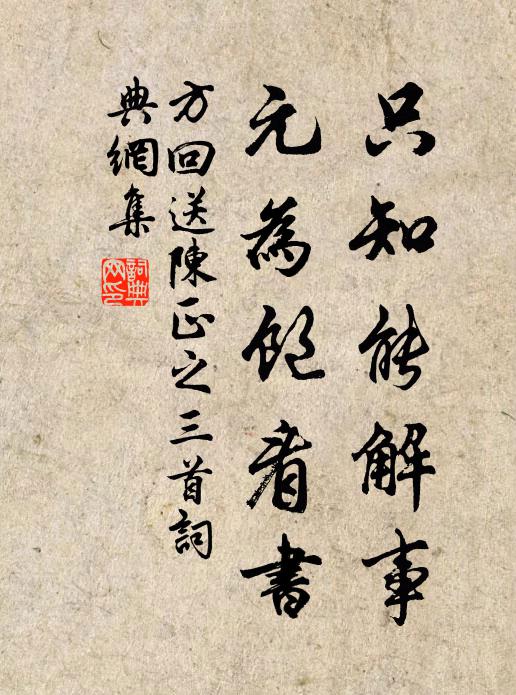 只知能解事
元為飽看書
方回送陳正之三首詞
典網集
詞典网印